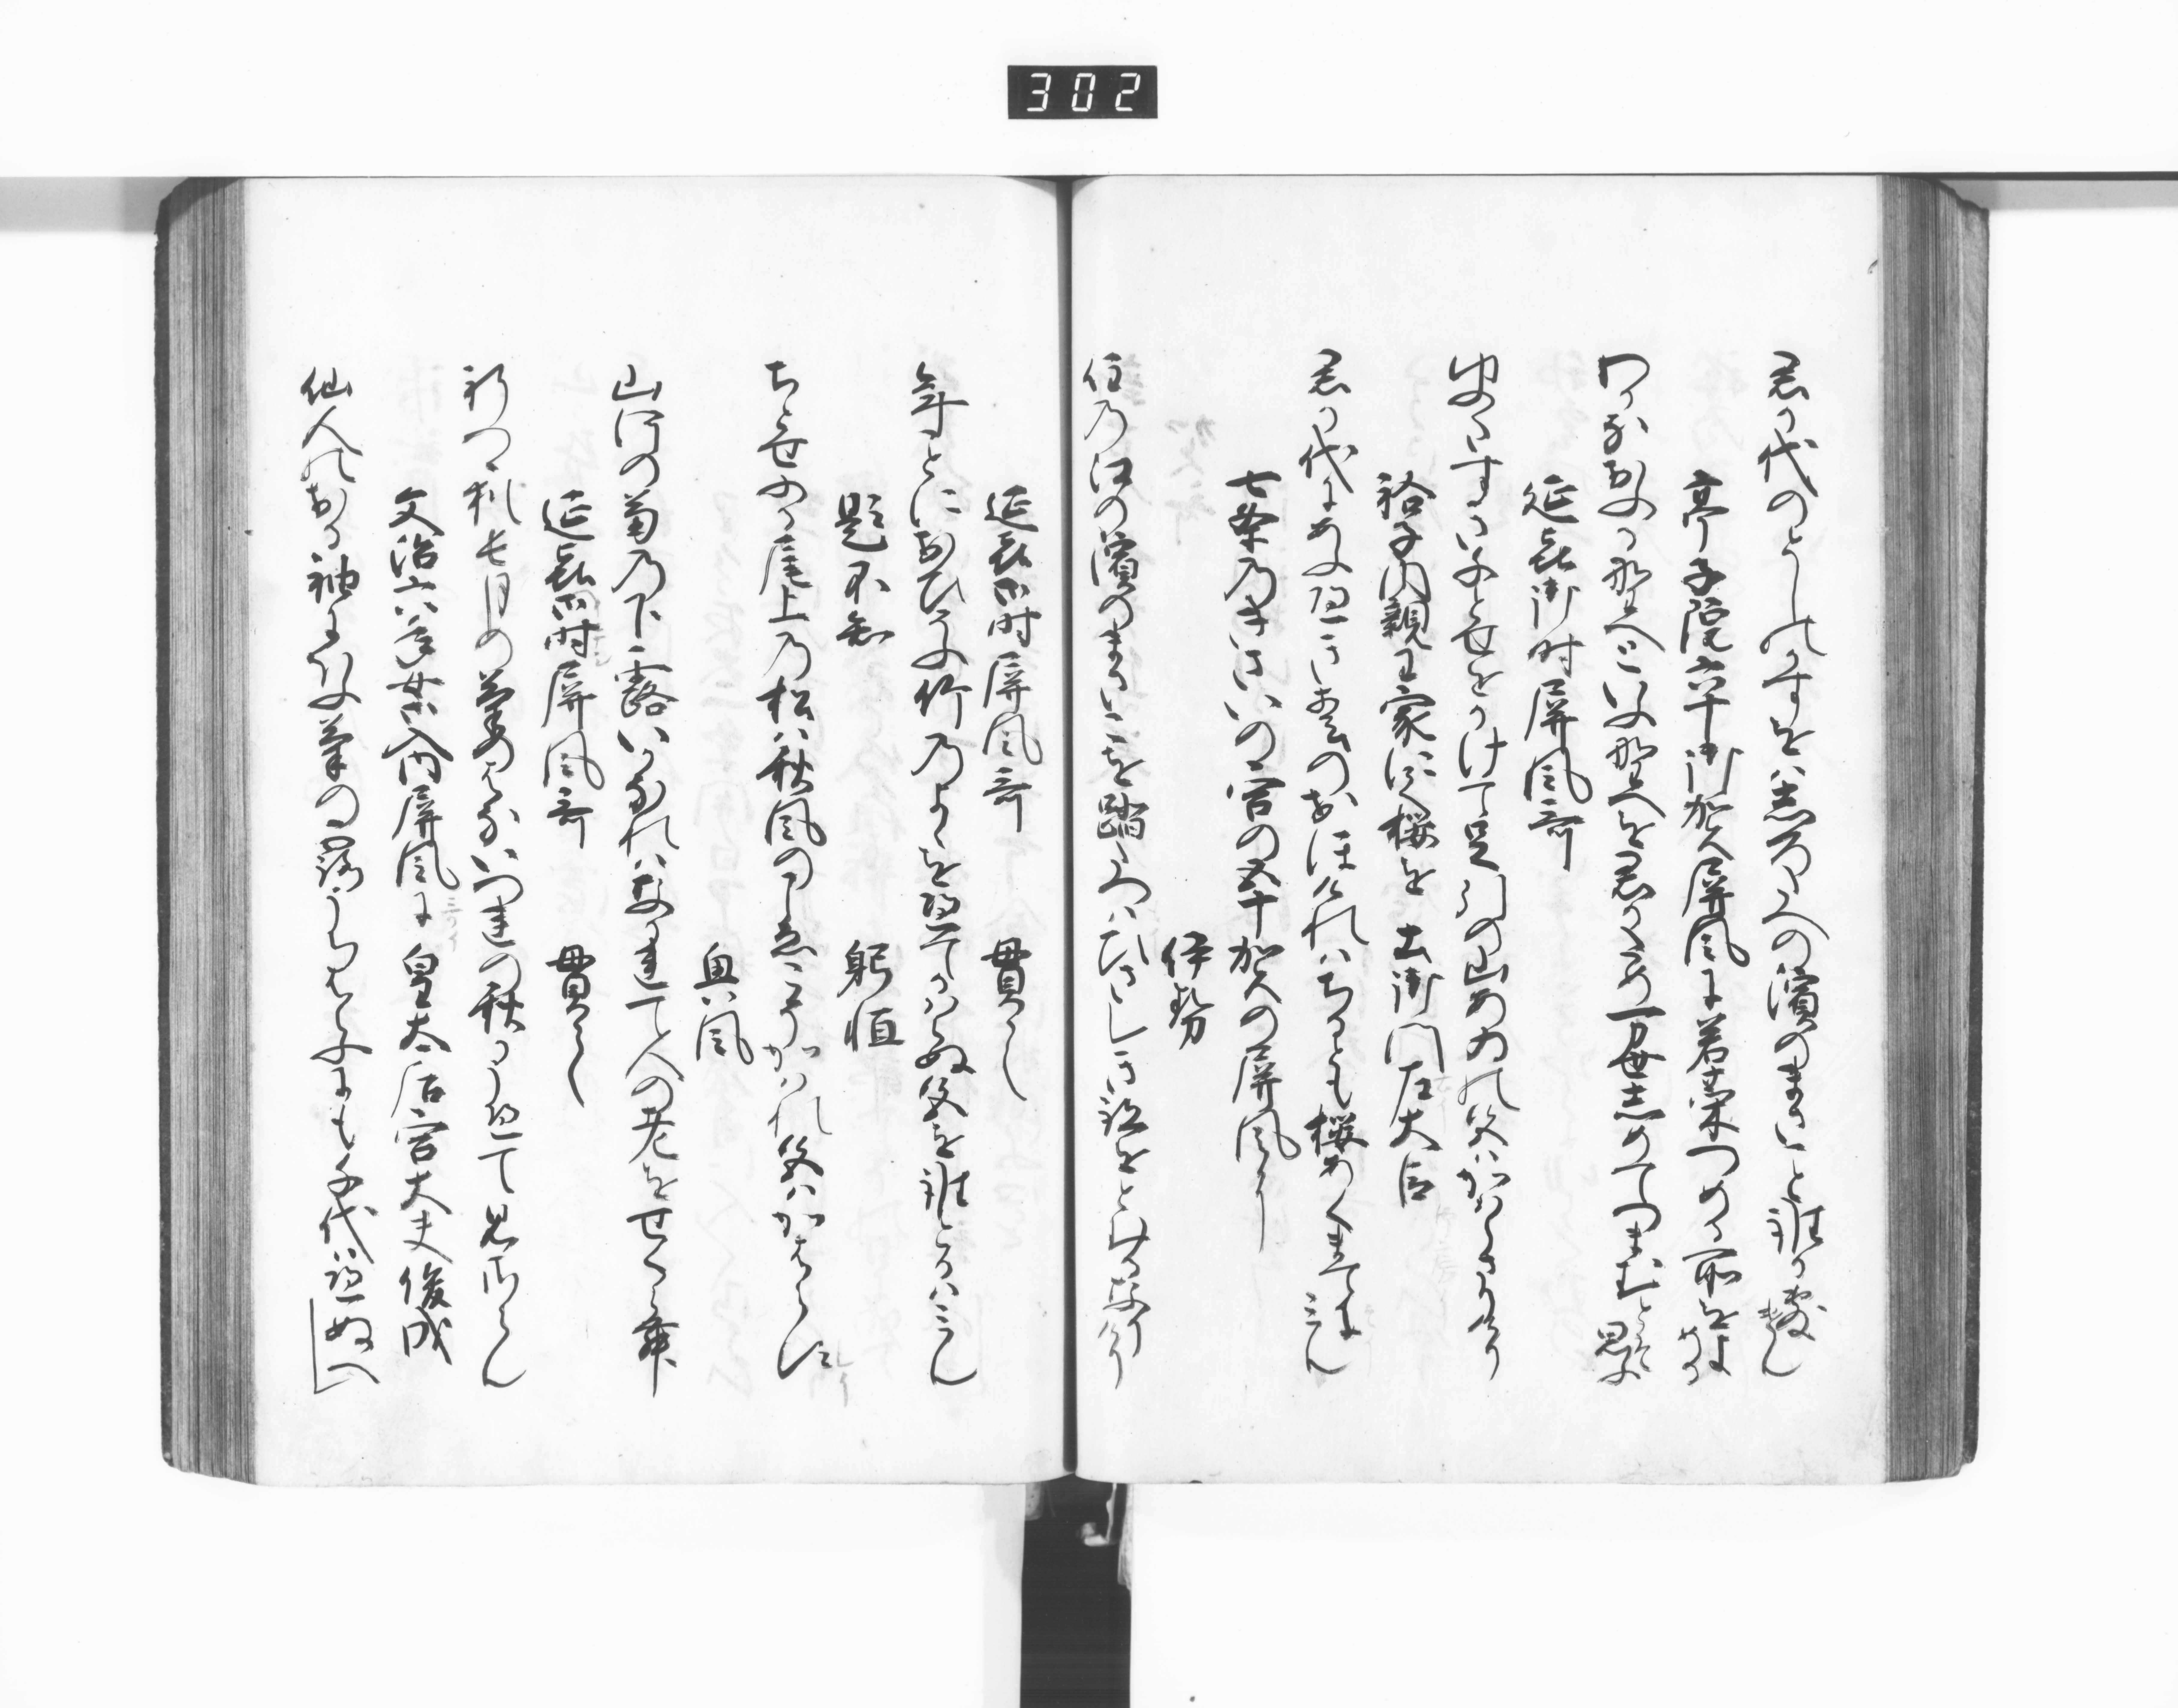 302
君か代のとしのかすをは志ろたへの濱のまさことたれか敷けん
亭子院六十御賀屏風に若菜つめる所をよめる
わかなおふる野へといふ野へを君かため万世志めてつまむとそ思ふ
延喜御時屏風哥
ゆふたすきちとせをかけて足引の山あゐの色はかはらさりけり
祐子内親王家にて桜を 土御門右大臣
君か代にあふへき春のおほけれはちるとも桜あくまてそみん
七条乃きさいの宮の五十賀の屏風に
伊勢
住乃江の濱のまさこを踏たつはひさしき跡をとむる成けり
延喜御時屏風哥 貫之
年ことにおひそふ竹乃よゝを経てかはらぬ色を誰とかはみん
題不知 躬恒
ちとせふる尾上乃松は秋風のこゑこそかはれ色はかはらす
興風
山河の菊乃下露いかなれはなかれて人の老をせくらむ
延喜御時屏風哥 貫之
祈つゝ猶長月の菊の花いつれの秋かうへて見さらん
文治六年女御入内屏風に 皇太后宮大夫俊成
仙人のおる袖にほふ菊の露うちはらふにも千代は経ぬへ